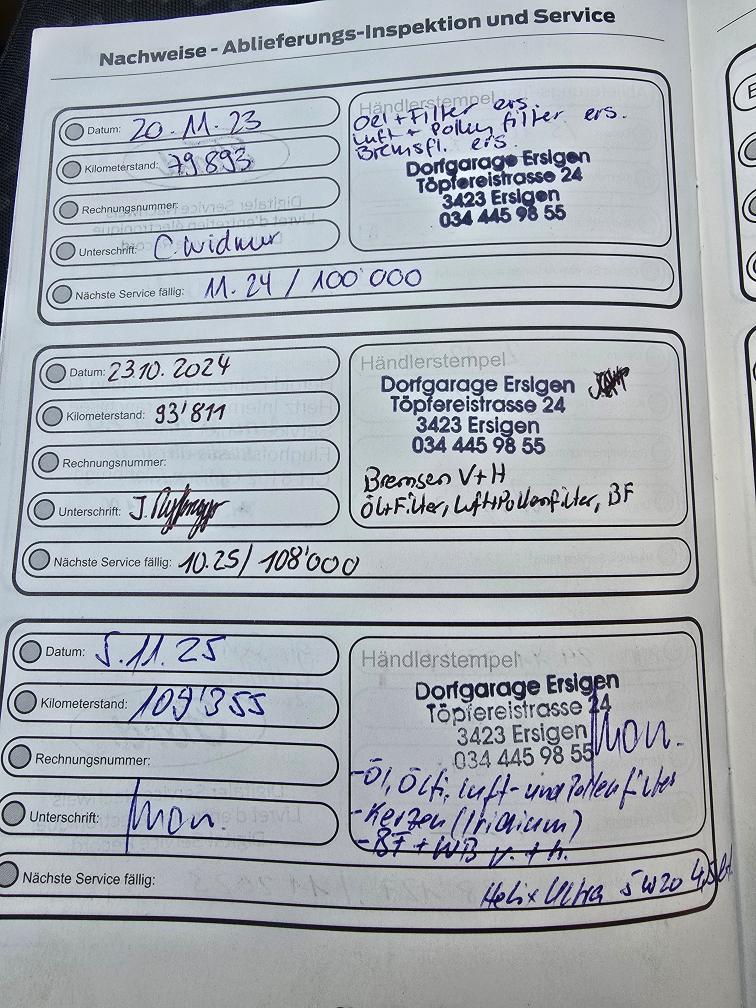 Nachweise - Ablieferungs-Inspektion und Service
Datum: 20.11.23
Kilometerstand: 79893
Rechnungsnummer:
Unterschrift: C. Widmer
Händlerstempel
Oel + Filter ers.
Luft + Pollen filter ers.
Bremsfl. ers.
Dorfgarage Ersigen
Töpfereistrasse 24
3423 Ersigen
034 445 98 55
Nächste Service fällig: 11.24 / 100'000
Datum: 23.10.2024
Kilometerstand: 93'811
Rechnungsnummer:
Unterschrift: J.
Händlerstempel
Dorfgarage Ersigen
Töpfereistrasse 24
3423 Ersigen
034 445 98 55
Bremsen V+H
Öl+Filter, Luft+Pollenfilter, BF
Nächste Service fällig: 10.25/ 108'000
Datum: 5.11.25
Kilometerstand: 109'355
Rechnungsnummer:
Unterschrift:
Händlerstempel
Dorfgarage Ersigen
Töpfereistrasse 24
3423 Ersigen
034 445 98 55
-Öl, Ölfi, Luft- und Pollenfilter
-Kerzen (Iridium)
-BF + WB v. + h.
Nächste Service fällig:
Helix Ultra 5W20 4,5lt.